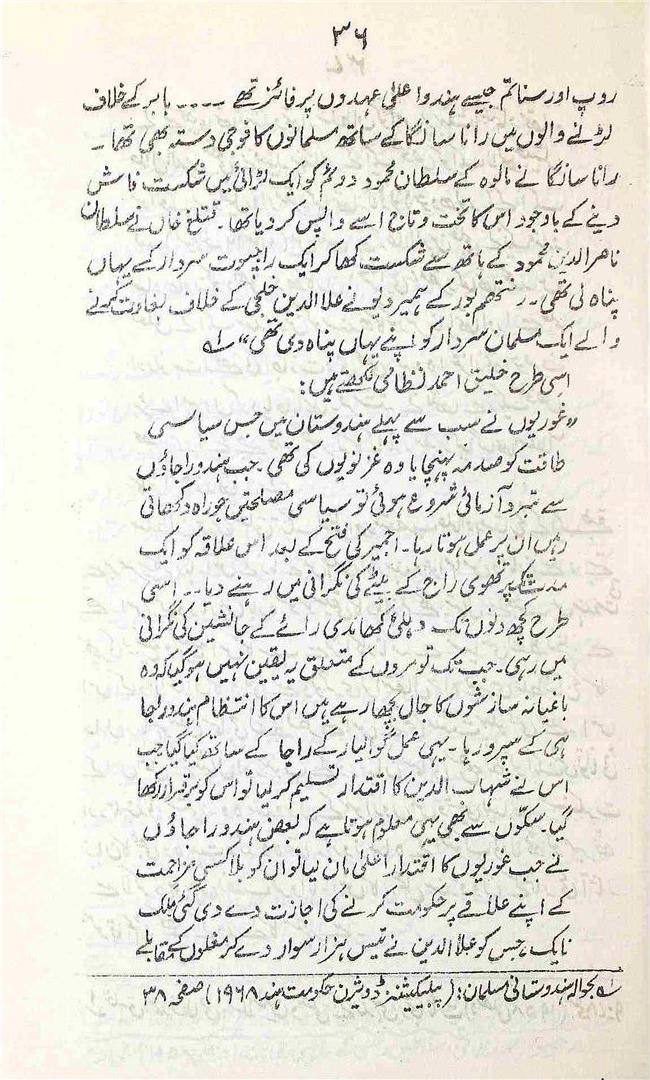 ۳۶
روپ اور سناتم جیسے ہندو اعلیٰ عہدوں پر فائز تھے ۔۔۔۔ بابر کے خلاف
لڑنے والوں میں رانا سانگا کے ساتھ مسلمانوں کا فوجی دستہ بھی تھا ۔
رانا سانگا نے مالوہ کے سلطان محمود دوئم کو ایک لڑائی میں شکست فاش
دینے کے باوجود اس کا تخت و تاج اسے واپس کر دیا تھا ۔ قتلغ خاں نے سلطان
ناصر الدین محمود کے ہاتھ سے شکست کھا کر ایک راجپوت سردار کے یہاں
پناہ لی تھی ۔ رنتھمبور کے ہمیر دیو نے علاالدین خلجی کے خلاف بغاوت کرنے
والے ایک مسلمان سردار کو اپنے یہاں پناہ دی تھی“ لہ
اسی طرح خلیق احمد نظامی لکھتے ہیں :
”غوریوں نے سب سے پہلے ہندوستان میں جس سیاسی
طاقت کو صدمہ پہنچایا وہ غزنویوں کی تھی ۔ جب ہندو راجاؤں
سے نبرد آزمائی شروع ہوئی تو سیاسی مصلحتیں جو راہ دکھاتی
رہیں ان پر عمل ہوتا رہا ۔ اجمیر کی فتح کے بعد اس علاقہ کو ایک
مدت تک پرتھوی راج کے بیٹے کی نگرانی میں رہنے دیا ۔۔ اسی
طرح کچھ دنوں تک دہلی کھانڈی رائے کے جانشین کی نگرانی
میں رہی ۔ جب تک توسروں کے متعلق یہ یقین نہیں ہو گیا کہ وہ
باغیانہ سازشوں کا جال بچھا رہے ہیں اس کا انتظام ہندو راجا
ہی کے سپرد رہا ۔ یہی عمل گوالیار کے راجا کے ساتھ کیا گیا جب
اس نے شہاب الدین کا اقتدار تسلیم کر لیا تو اس کو برقرار رکھا
گیا ۔ سکّوں سے بھی یہی معلوم ہوتا ہے کہ بعض ہندو راجاؤں
نے جب غوریوں کا اقتدار اعلیٰ مان لیا تو ان کو بلا کسی مزاحمت
کے اپنے علاقے پر حکومت کرنے کی اجازت دے دی گئی ملک
نایک ، جس کو علاؤالدین نے تیس ہزار سوار دے کر مغلوں کے مقابلے
لہ بحوالہ ہندوستانی مسلمان : (پبلیکیشنز ڈویژن حکومت ہند ۱۹۶۸) صفحہ ۳۸